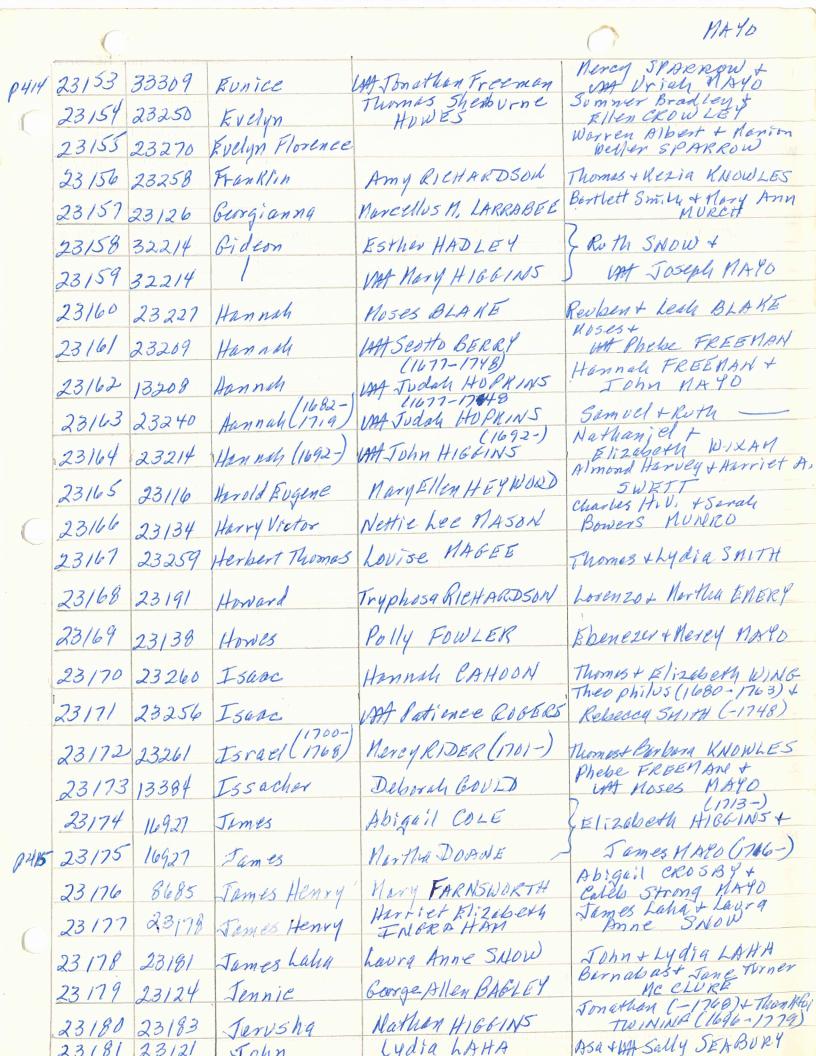 MAYO
p414 23153 33309 Eunice VAA Jonathan Freeman Mercy SPARROW + VAA Uriah MAYO
23154 23250 Evelyn Thomas Sherburne HOWES Sumner Bradley + Ellen CROWLEY
23155 23270 Evelyn Florence Warren Albert + Marion Weller SPARROW
23156 23258 Franklin Amy RICHARDSON Thomas + Kezia KNOWLES
23157 23126 Georgianna Marcellus M. LARRABEE Bartlett Smith + Mary Ann MURCH
23158 32214 Gideon Esther HADLEY } Ruth SNOW +
23159 32214 | VAA Mary HIGGINS VAA Joseph MAYO
23160 23227 Hannah Moses BLAKE Reuben + Leah BLAKE
23161 23209 Hannah VAA Scotto BERRY Moses + VAA Phebe FREEMAN
23162 13208 Hannah (1677-1748) VAA Judah HOPKINS Hannah FREEMAN + John MAYO
23163 23240 Hannah (1682-1719) (1677-1748 VAA Judah HOPKINS Samuel + Ruth —
23164 23214 Hannah (1692-) (1692-) VAA John HIGGINS Nathaniel + Elizabeth WIXAM
23165 23116 Harold Eugene Mary Ellen HEYWOOD Almond Harvey + Harriet A. SWETT
23166 23134 Harry Victor Nettie Lee MASON Charles H.V. + Sarah Bowers MUNRO
23167 23259 Herbert Thomas Louise MAGEE Thomas + Lydia SMITH
23168 23191 Howard Tryphosa RICHARDSON Lorenzo + Martha EMERY
23169 23138 Howes Polly FOWLER Ebenezer + Mercy MAYO
23170 23260 Isaac Hannah CAHOON Thomas + Elizabeth WING
23171 23256 Isaac VAA Patience ROGERS Theophilus (1680-1763) + Rebecca SMITH (-1748)
23172 23261 Israel (1700-1768) Mercy RIDER (1701-) Thomas + Barbara KNOWLES
23173 13384 Issacher Deborah GOULD Phebe FREEMAN + VAA Moses MAYO
23174 16927 James Abigail COLE } (1713-) Elizabeth HIGGINS +
p415 23175 16927 James Martha DOANE James MAYO
23176 8685 James Henry Mary FARNSWORTH Abigail CROSBY + Caleb Strong MAYO
23177 23178 James Henry Harriet Elizabeth INGRAHAM James Laha + Laura Anne SNOW
23178 23181 James Laha Laura Anne SNOW John + Lydia LAHA
23179 23124 Jennie George Allen BAGLEY Barnabas + Jane Turner McCLURE
23180 23183 Jerusha Nathan HIGGINS Jonathan (-1768) + Thankful TWINING (1696-1779)
23181 23121 John Lydia LAHA Asa + VAA Sally SEABURY